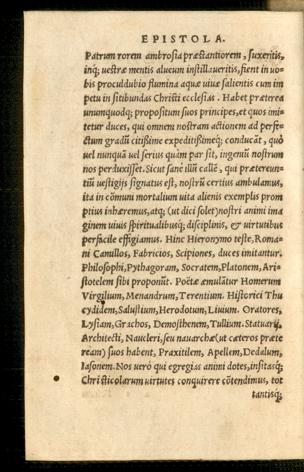 EPISTOLA.
Patrum rorem ambrosia præstantiorem, suxeritis,
inq; uestræ mentis alueum instillaueritis, fient in uo-
bis proculdubio flumina aquæ uiuæ salientis cum im
petu in sitibundas Christi ecclesias. Habet præterea
unumquodq; propositum suos principes, et quos imi-
tetur duces, qui omnem nostram actionem ad perfe-
ctum gradū citissime expeditissimeq; conducāt, quò
uel nunquā uel serius quàm par sit, ingeniū nostrum
nos perduxisset. Sicut sanè illū callē, qui prætereun-
tiū uestigijs signatus est, nostrū certius ambulamus,
ita in cōmuni mortalium uita alienis exemplis prom
ptius inhæremus, atq; (ut dici solet) nostri animi ima
ginem uiuis spiritualibusq; disciplinis, & uirtutibus
perfacile effigiamus. Hinc Hieronymo teste, Roma-
ni Camillos, Fabricios, Scipiones, duces imitantur.
Philosophi, Pythagoram, Socratem, Platonem, Ari-
stotelem sibi proponūt. Poëtæ æmulātur Homerum
Virgilium, Menandrum, Terentium. Historici Thu
cydidem, Salustium, Herodotum, Liuium. Oratores,
Lysiam, Grachos, Demosthenem, Tullium. Statuarij,
Architecti, Naucleri, seu nauarchæ (ut cæteros præte
ream) suos habent, Praxitilem, Apellem, Dedalum,
Iasonem. Nos uerò qui egregias animi dotes, insitasq;
Christicolarum uirtutes conquirere cōtendimus, tot
tantisq;